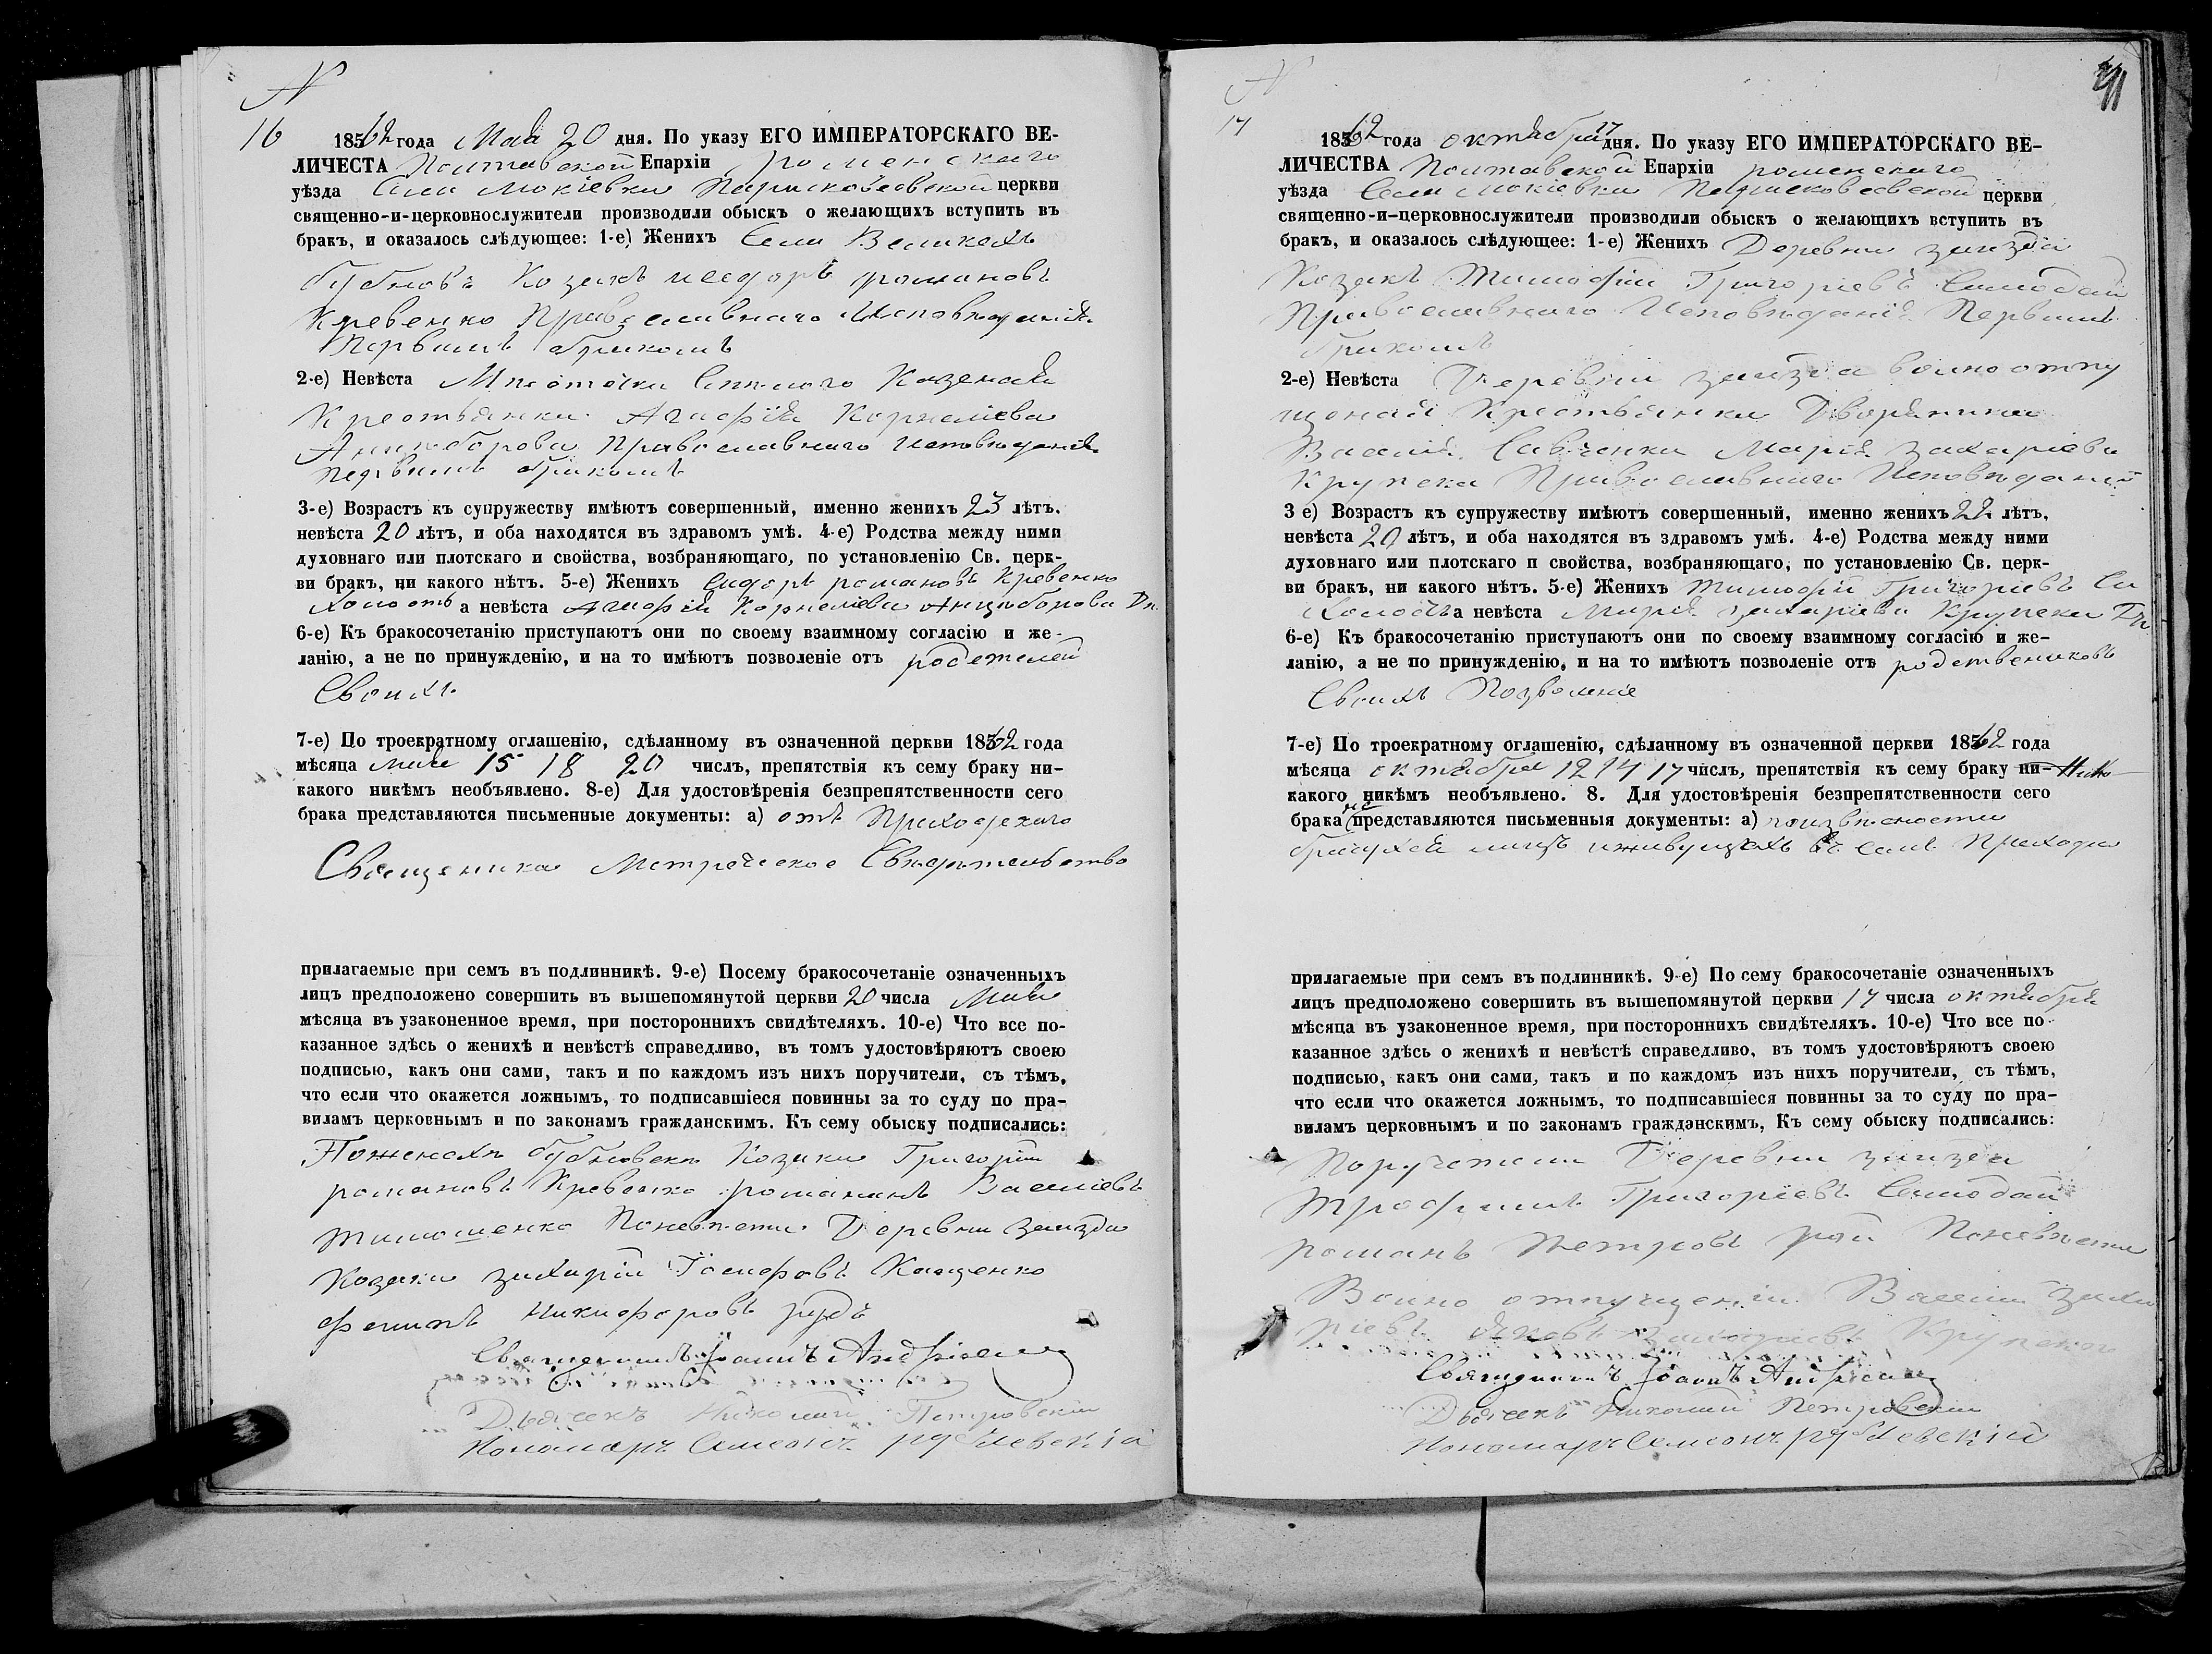 N
16
1862 года Мая 20 дня. По указу ЕГО ИМПЕРАТОРСКАГО ВЕ-
ЛИЧЕСТА Полтавской Епархіи роменскаго
уѣзда Села Мокіевки Парасковеевской церкви
священно-и-церковнослужители производили обыскъ о желающихъ вступить въ
бракъ, и оказалось слѣдующее: 1-е) Женихъ Села Великихъ
бубновъ Козакъ романовъ
Кревенко Православнаго Исповѣданія
Первымъ бракомъ
2-е) Невѣста Казеная
Крестьянка Агафія Корнеліева
Анциборова Православнаго Исповѣданія
Первымъ бракомъ
3-е) Возрастъ къ супружеству имѣютъ совершенный, именно женихъ 23 лѣтъ.
невѣста 20 лѣтъ, и оба находятся въ здравомъ умѣ. 4-е) Родства между ними
духовнаго или плотскаго и свойства, возбраняющаго, по установленію Св. церк-
ви бракъ, ни какого нѣтъ. 5-е) Женихъ романовъ Кревенко
Холостъ а невѣста Агафія Корнеліева Анциборова
6-е) Къ бракосочетанію приступаютъ они по своему взаимному согласію и же-
ланію, а не по принужденію, и на то имѣютъ позволеніе отъ родетелей
Своихъ
7-е) По троекратному оглашенію, сдѣланному въ означенной церкви 1862 года
мѣсяца мая 15 18 20 числъ, препятствія къ сему браку ни-
какого никѣмъ необъявлено. 8-е) Для удостовѣренія безпрепятственности сего
брака представляются письменные документы: а) отъ Приходскаго
Священика Метрическое Свидетельство
прилагаемые при семъ въ подлинникѣ. 9-е) Посему бракосочетаніе означенныхъ
лицъ предположено совершить въ вышепомянутой церкви 20 числа Мая
мѣсяца въ узаконенное время, при постороннихъ свидѣтеляхъ. 10-е) Что все по-
казанное здѣсь о женихѣ и невѣстѣ справедливо, въ томъ удостовѣряютъ своею
подписью, какъ они сами, такъ и по каждомъ изъ нихъ поручители, съ тѣмъ,
что если что окажется ложнымъ, то подписавшіеся повинны за то суду по пра-
виламъ церковнымъ и по законамъ гражданскимъ. Къ сему обыску подписались:
Поженихѣ Козаки Григорій
романовъ Кревенко романъ Василіевъ
Тимошенко Поневѣсте Деревни Заизда
Козаки Захарій Іосифовъ Кащенко
Никифоровъ
Священникъ Іоаннъ
Дьячекъ Николай Петровскій
Пономарь Симеонъ
N
17
41
1862 года октября 17 дня. По указу ЕГО ИМПЕРАТОРСКАГО ВЕ-
ЛИЧЕСТВА Полтавской Епархіи роменскаго
уѣзда Села Мокіевки Параскововеевской церкви
священно-и-церковнослужители производили обыскъ о желающихъ вступить въ
бракъ, и оказалось слѣдующее: 1-е) Женихъ Деревни заизда
Козакъ Тимофій Григоріевъ Самодай
Православнаго Исповѣданія Первымъ
бракомъ
2-е) Невѣста Деревни заизда волноотпу
щоная Крестьянка Дворянина
Василія Савченка Марія Захаріева
Крупска Православнаго Исповѣданія
3 е) Возрастъ къ супружеству имѣютъ совершенный, именно женихъ 22 лѣтъ,
невѣста 20 лѣтъ, и оба находятся въ здравомъ умѣ. 4-е) Родства между ними
духовнаго или плотскаго п свойства, возбраняющаго, по установленію Св. церк-
ви бракъ, ни какого нѣтъ. 5-е) Женихъ Тимофій Григоріевъ Са
Холостъ а невѣста Марія Захаріева Крупска
6-е) Къ бракосочетанію приступаютъ они по своему взаимному согласію и же-
ланію, а не по принужденію, и на то имѣютъ позволеніе отъ родствениковъ
Своихъ Позволеніе
7-е) По троекратному оглашенію, сдѣланному въ означенной церкви 1862 года
мѣсяца октября 12 14 17 числъ, препятствія къ сему браку ни-
какого никѣмъ необъявлено. 8. Для удостовѣренія безпрепятственности сего
брака не представляются письменныя документы: а) поизвѣсности
лицъ иживущихъ въ семъ Приходѣ
прилагаемые при семъ въ подлинникѣ. 9-е) По сему бракосочетаніе означенныхъ
лицъ предположено совершить въ вышепомянутой церкви 17 числа октября
мѣсяца въ узаконенное время, при постороннихъ свидѣтеляхъ. 10-е) Что все по-
казанное здѣсь о женихѣ и невѣстѣ справедливо, въ томъ удостовѣряютъ своею
подписью, какъ они сами, такъ и по каждомъ изъ нихъ поручители, съ тѣмъ,
что если что окажется ложнымъ, то подписавшіеся повинны за то суду по пра-
виламъ церковнымъ и по законамъ гражданскимъ, Къ сему обыску подписались:
Поручители Деревни заизда
Трофимъ Григоріевъ Самодай
романъ Петровъ рай Поневѣсте
Волно отпущении Василій Заха
ріевъ Яковъ Захаріевъ Крупского
Священникъ Іоаннъ
Дьячекъ Николай Петровскій
Пономарь Симеонъ